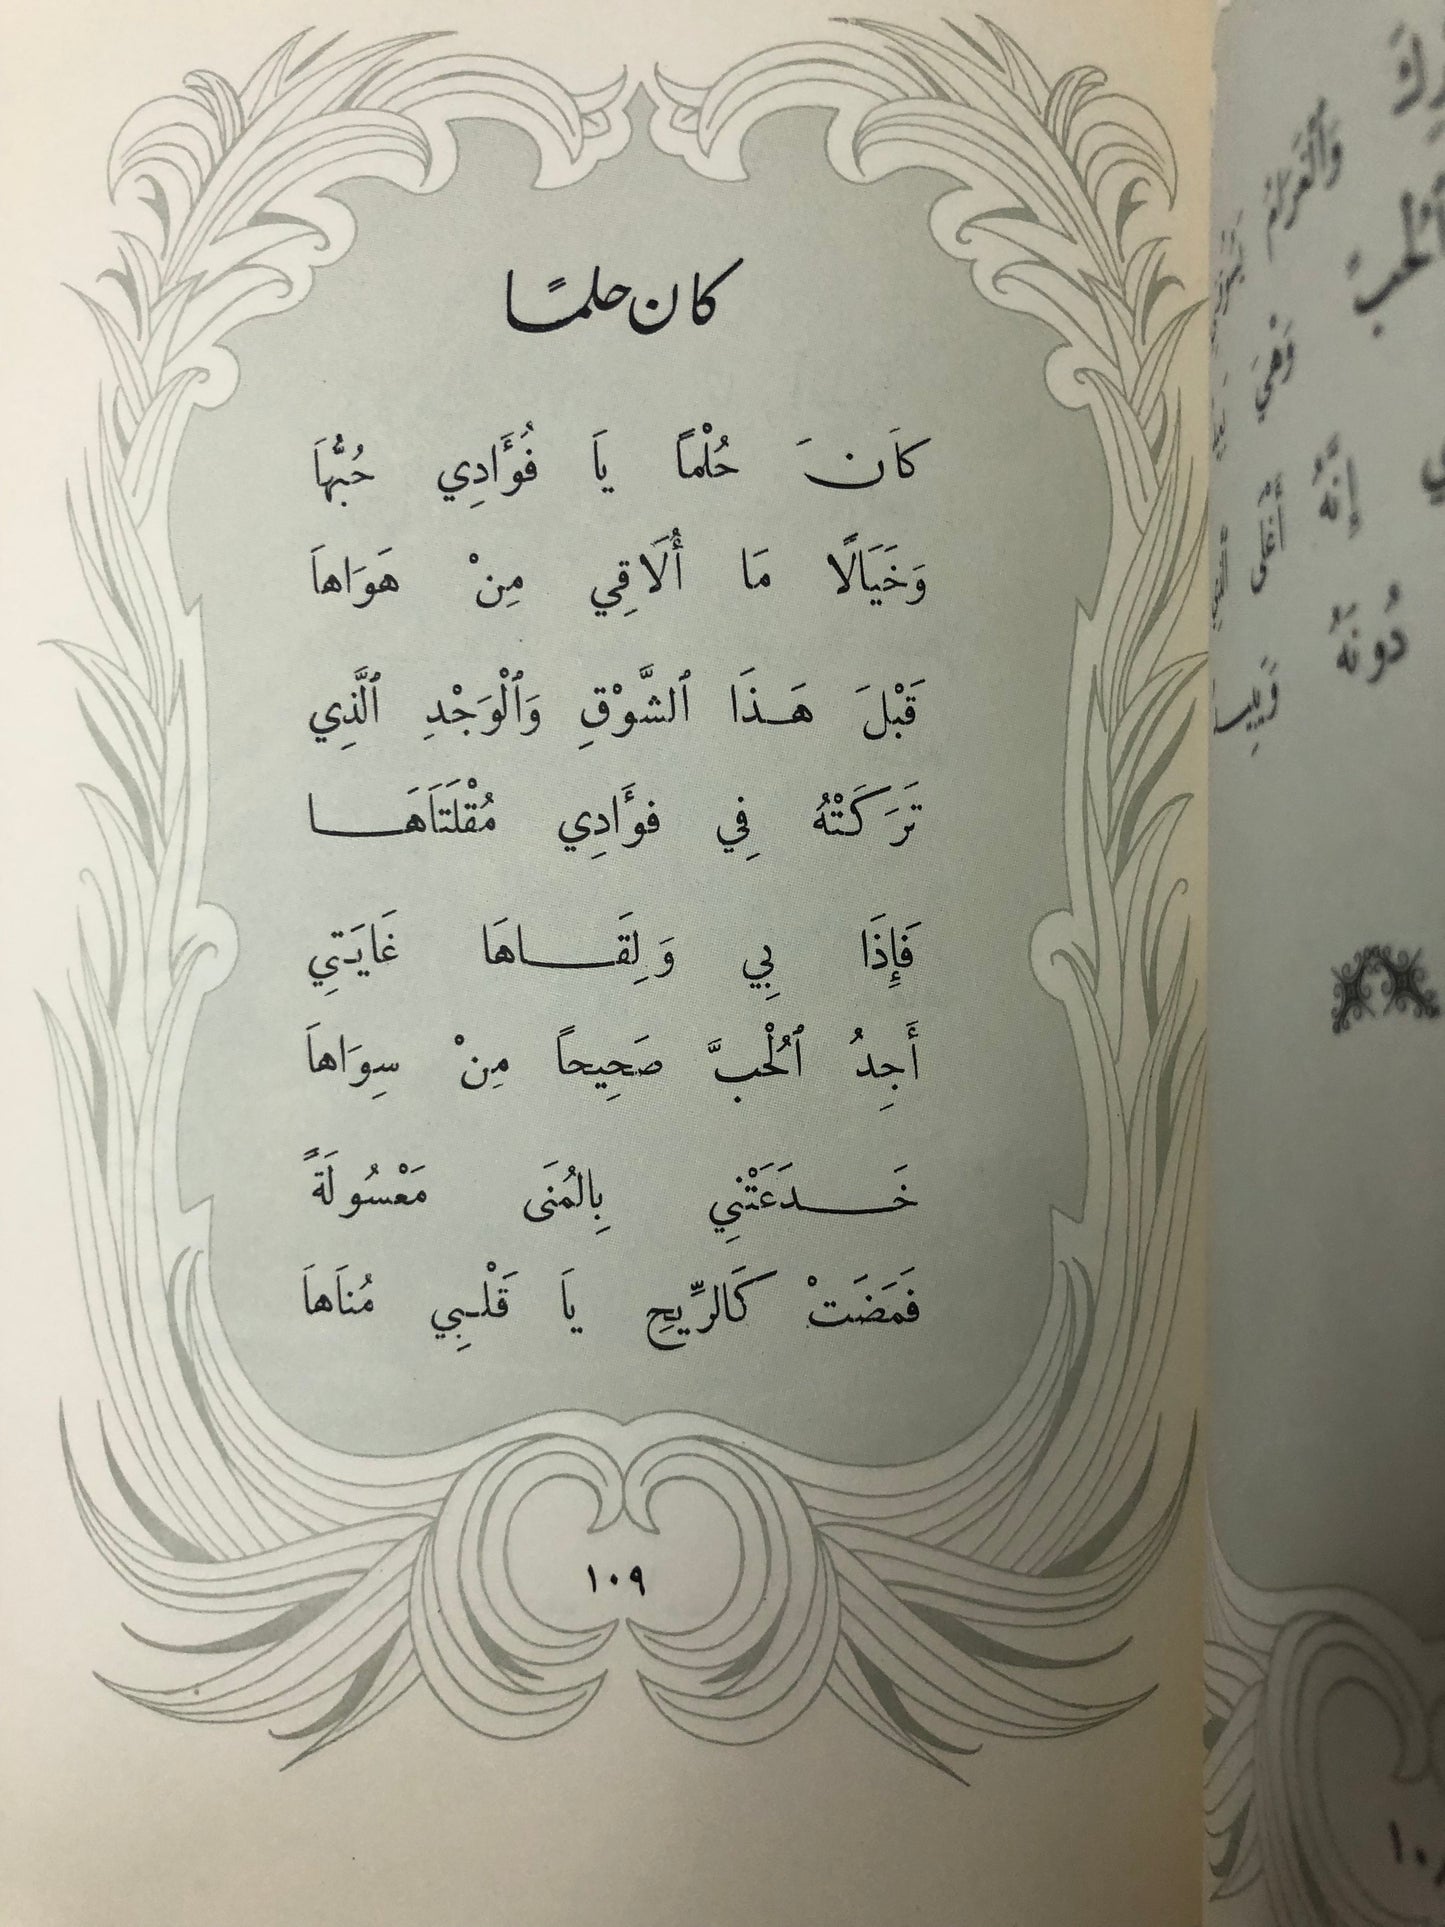 كان حلمًا
كَانَ حُلْماً يَا فُؤَادِي حُبُّهَا
وَخَيَالًا مَا أُلَاقِي مِنْ هَوَاهَا
قَبْلَ هَـذَا ٱلشَّوْقِ وَٱلْوَجْدِ ٱلَّذِي
تَرَكَتْهُ فِي فؤَادِي مُقْلَتَاهَـــا
فَإِذَا بِي وَلِقَـــاهَا غَايَتِي
أَجِدُ ٱلْحُبَّ صَحِيحاً مِنْ سِوَاهَا
خَـــدَعَتْنِي بِالمُنَى مَعْسُولَةً
فَمَضَتْ كَالرِّيحِ يَا قَلْـبِي مُنَاهَا
١٠٩
وَٱلْغَرَامُ
ٱلْحُبُّ
وَهْيَ
إِنَّهُ أَغْلَى
دُونَهُ